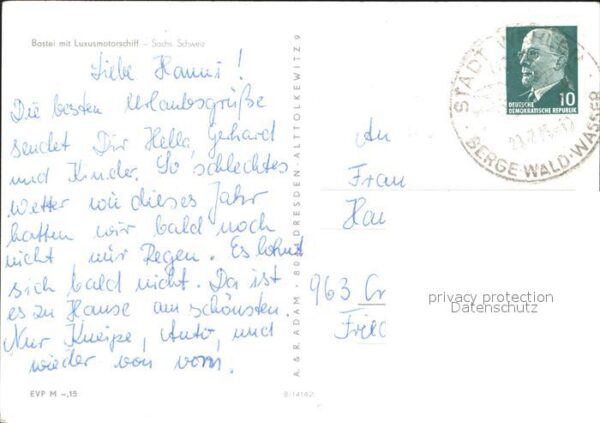 Bastei mit Luxusmotorschiff – Sächs. Schweiz
Liebe Hanni!
Die besten Urlaubsgrüße
sendet Dir Hella, Gerhard
und Kinder. So schlechtes
Wetter wie dieses Jahr
hatten wir bald noch
nicht nur Regen. Es lohnt
sich bald nicht. Da ist
es zu Hause am schönsten.
Nur Kneipe, Auto, und
wieder von vorn.
EVP M –,15
B/14142
A. & R. ADAM · DRESDEN · ALTTOLKEWITZ 9
10
DEUTSCHE
DEMOKRATISCHE REPUBLIK
STADT
BERGE·WALD·WASSER
An
Frau
963
privacy protection
Datenschutz